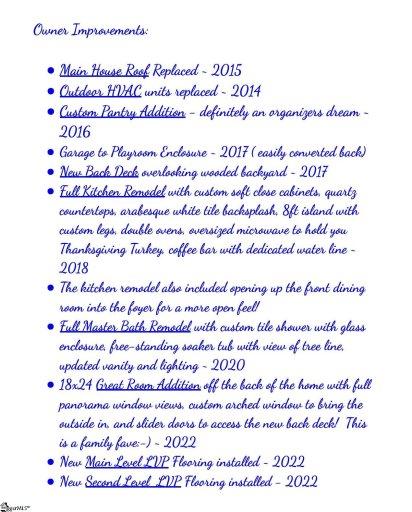 Owner Improvements:
• Main House Roof Replaced ~ 2015
• Outdoor HVAC units replaced ~ 2014
• Custom Pantry Addition - definitely an organizers dream ~
2016
• Garage to Playroom Enclosure ~ 2017 ( easily converted back)
• New Back Deck overlooking wooded backyard ~ 2017
• Full Kitchen Remodel with custom soft close cabinets, quartz
countertops, arabesque white tile backsplash, 8ft island with
custom legs, double ovens, oversized microwave to hold you
Thanksgiving Turkey, coffee bar with dedicated water line ~
2018
• The kitchen remodel also included opening up the front dining
room into the foyer for a more open feel!
• Full Master Bath Remodel with custom tile shower with glass
enclosure, free-standing soaker tub with view of tree line,
updated vanity and lighting ~ 2020
• 18x24 Great Room Addition off the back of the home with full
panorama window views, custom arched window to bring the
outside in, and slider doors to access the new back deck! This
is a family fave:-) ~ 2022
• New Main Level LVP Flooring installed ~ 2022
• New Second Level LVP Flooring installed ~ 2022